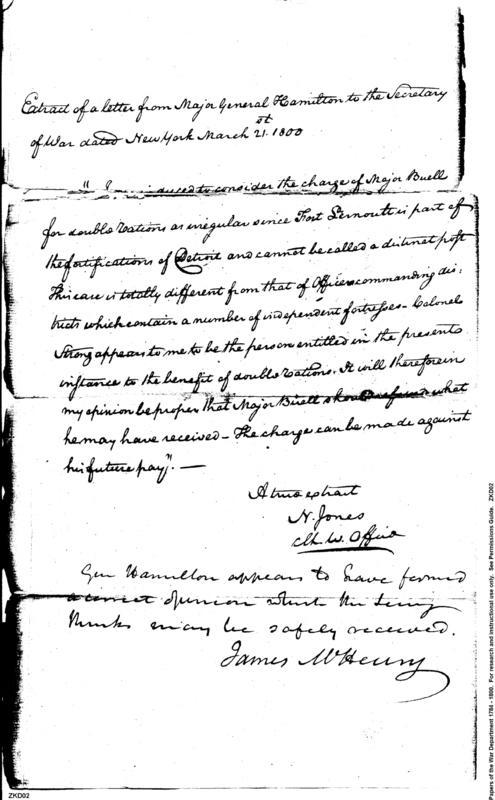 Extract of a letter from Major General Hamilton to the Secretary
of War dated New York March 21st 1800
"I used to consider the charge of Major Buell
for double rations as irregular since Fort Lernoult is part of
the fortifications of Detroit and cannot be called a distinct post
This case is totally different from that of Officers commanding dis:
tricts which contain a number of independent fortresses – Colonel
Strong appears to me to be the person entitled in the present
instance to the benefit of double rations. It will therefore in
my opinion be proper that Major Buell should refund what
he may have received – The charge can be made against
his future pay". —
A true extract
N. Jones
Clk W. Office
Gen Hamilton appears to have formed
a correct opinion which the Secy
thinks may be safely received.
James McHenry
ZKD02
Papers of the War Department 1784 - 1800. For research and instructional use only. See Permissions Guide. ZKD02